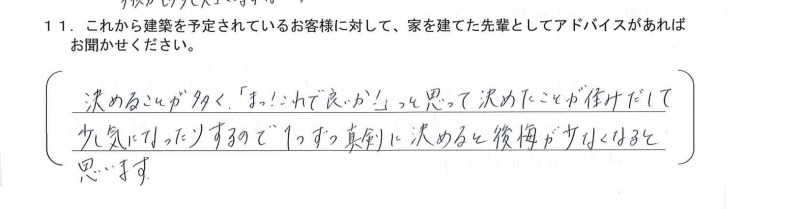 １１．これから建築を予定されているお客様に対して、家を建てた先輩としてアドバイスがあれば
お聞かせください。
決めることが多く、「まっ!これで良いか!」っと思って決めたことが住みだして
少し気になったりするので1つずつ真剣に決めると後悔が少なくなると
思います。